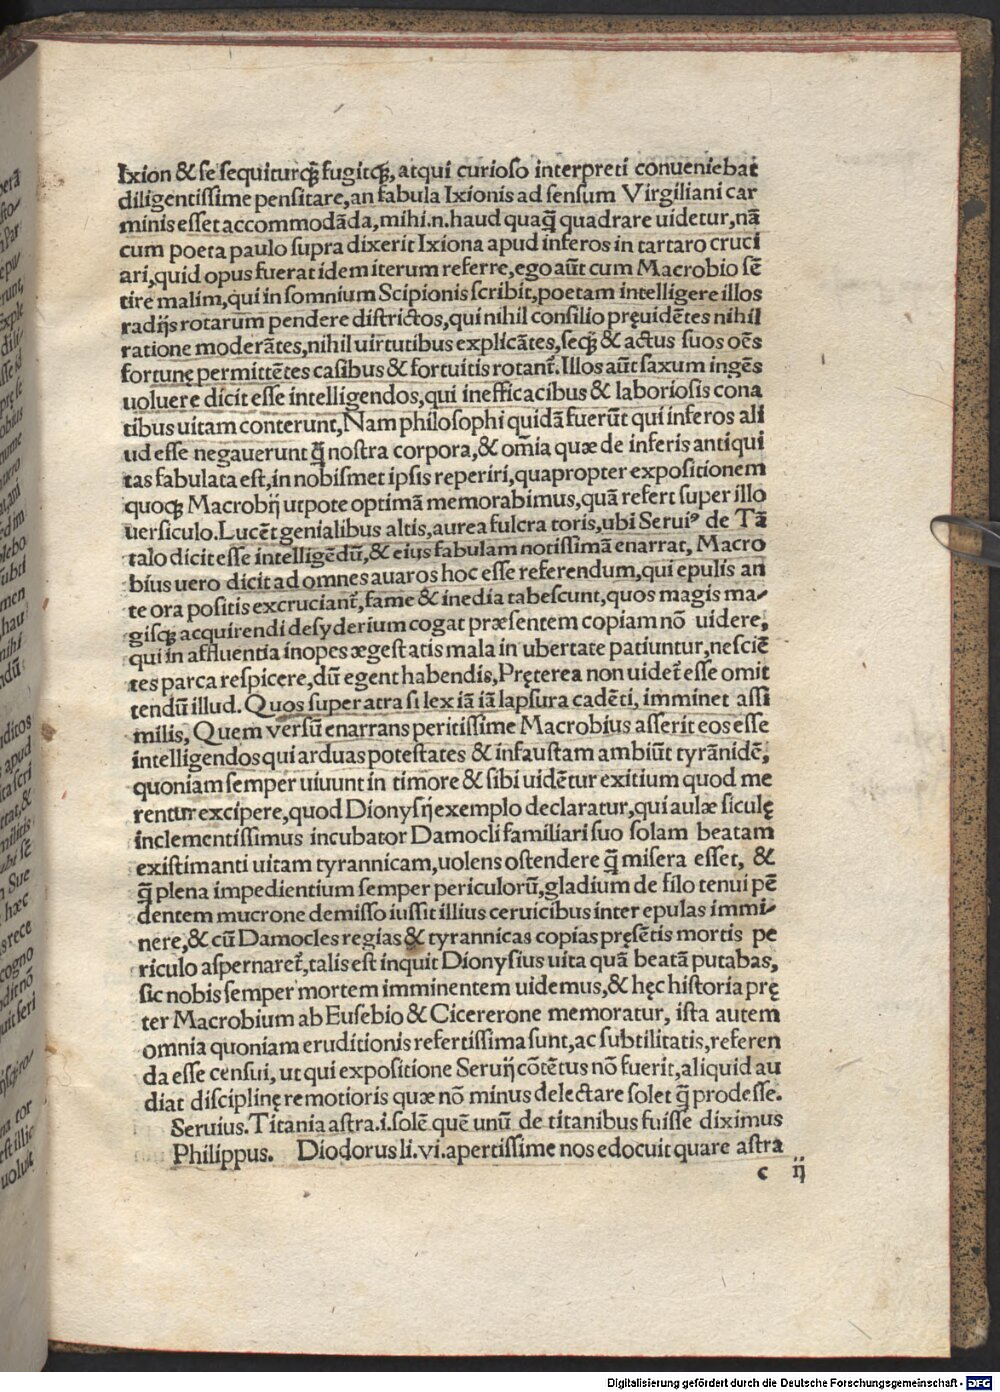 Ixion & se sequiturq̃ fugitq̃, atqui curioso interpreti conueniebat
diligentissime pensitare, an fabula Ixionis ad sensum Virgiliani car
minis esset accommodãda, mihi.n.haud quaq̃ quadrare uidetur, nã
cum poeta paulo supra dixerit Ixiona apud inferos in tartaro cruci
ari, quid opus fuerat idem iterum referre, ego aũt cum Macrobio sẽ
tire malim, qui in somnium Scipionis scribit, poetam intelligere illos
radijs rotarum pendere districtos, qui nihil consilio pręuidẽtes nihil
ratione moderãtes, nihil uirtutibus explicãtes, seq̃ & actus suos oẽs
fortunę permittẽtes casibus & fortuitis rotant̃. Illos aũt saxum ingẽs
uoluere dicit esse intelligendos, qui inefficacibus & laboriosis cona
tibus uitam conterunt, Nam philosophi quidã fuerũt qui inferos ali
ud esse negauerunt q̃ nostra corpora, & om̃ia quæ de inferis antiqui
tas fabulata est, in nobismet ipsis reperiri, quapropter expositionem
quoq̃ Macrobij utpote optimã memorabimus, quã refert super illo
uersiculo. Lucẽt genialibus altis, aurea fulcra toris, ubi Serui⁹ de Tã
talo dicit esse intelligẽdũ, & eius fabulam notissimã enarrat, Macro
bius uero dicit ad omnes auaros hoc esse referendum, qui epulis an
te ora positis excruciant̃, fame & inedia tabescunt, quos magis ma-
gisq̃ acquirendi desyderium cogat præsentem copiam nõ uidere,
qui in affluentia inopes ægestatis mala in ubertate patiuntur, nesciẽ
tes parca respicere, dũ egent habendis, Pręterea non uidet̃ esse omit
tendũ illud. Quos super atra silex iã iã lapsura cadẽti, imminet assi
milis, Quem versũ enarrans peritissime Macrobius asserit eos esse
intelligendos qui arduas potestates & infaustam ambiũt tyrãnidẽ,
quoniam semper uiuunt in timore & sibi uidẽtur exitium quod me
rentur excipere, quod Dionysij exemplo declaratur, qui aulæ siculę
inclementissimus incubator Damocli familiari suo solam beatam
existimanti uitam tyrannicam, uolens ostendere q̃ misera esset, &
q̃ plena impedientium semper periculorũ, gladium de filo tenui pẽ
dentem mucrone demisso iussit illius ceruicibus inter epulas immi-
nere, & cũ Damocles regias & tyrannicas copias pręsẽtis mortis pe
riculo aspernaret̃, talis est inquit Dionysius uita quã beatã putabas,
sic nobis semper mortem imminentem uidemus, & hęc historia prę
ter Macrobium ab Eusebio & Cicererone memoratur, ista autem
omnia quoniam eruditionis refertissima sunt, ac subtilitatis, referen
da esse censui, ut qui expositione Seruij cõtẽtus nõ fuerit, aliquid au
diat disciplinę remotioris quæ nõ minus delectare solet q̃ prodesse.
Seruius. Titania astra.i.solẽ quẽ unũ de titanibus fuisse diximus
Philippus. Diodorus li.vi.apertissime nos edocuit quare astra
c ij
Digitalisierung gefördert durch die Deutsche Forschungsgemeinschaft - DFG